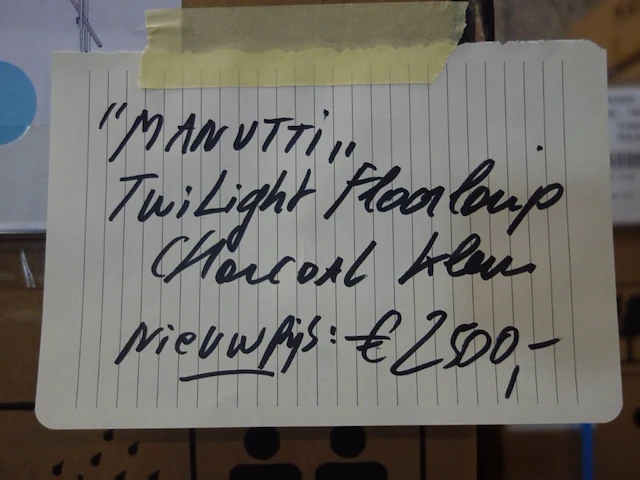 "MANUTTi„
TwiLight Floorlamp
CHarcoAL kleur
Nieuwprijs: € 2500,-